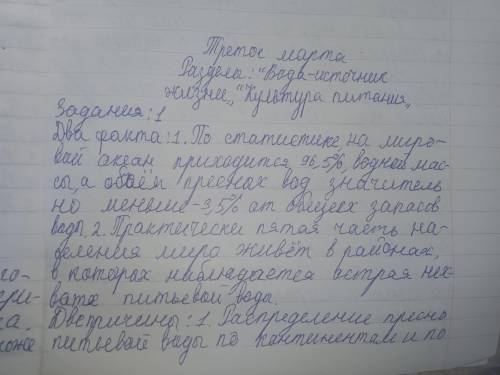 Третое марта
Разделы: "Вода-источник
жизни", "Культура питания"
Задания: 1
Два факта: 1. По статистике, на миро-
вой акеан приходится 96,5% водной мас-
сы, а объём пресных вод значитель
но меньше-3,5% от общех запасов
воды. 2. Практически пятая часть на-
селения мира живёт в районах,
го- в которах наблюдается острая нех-
ри- ватка питьевой вода.
ка. Две причины: 1. Распределение пресно
коже питьевой воды по кантинентам и по